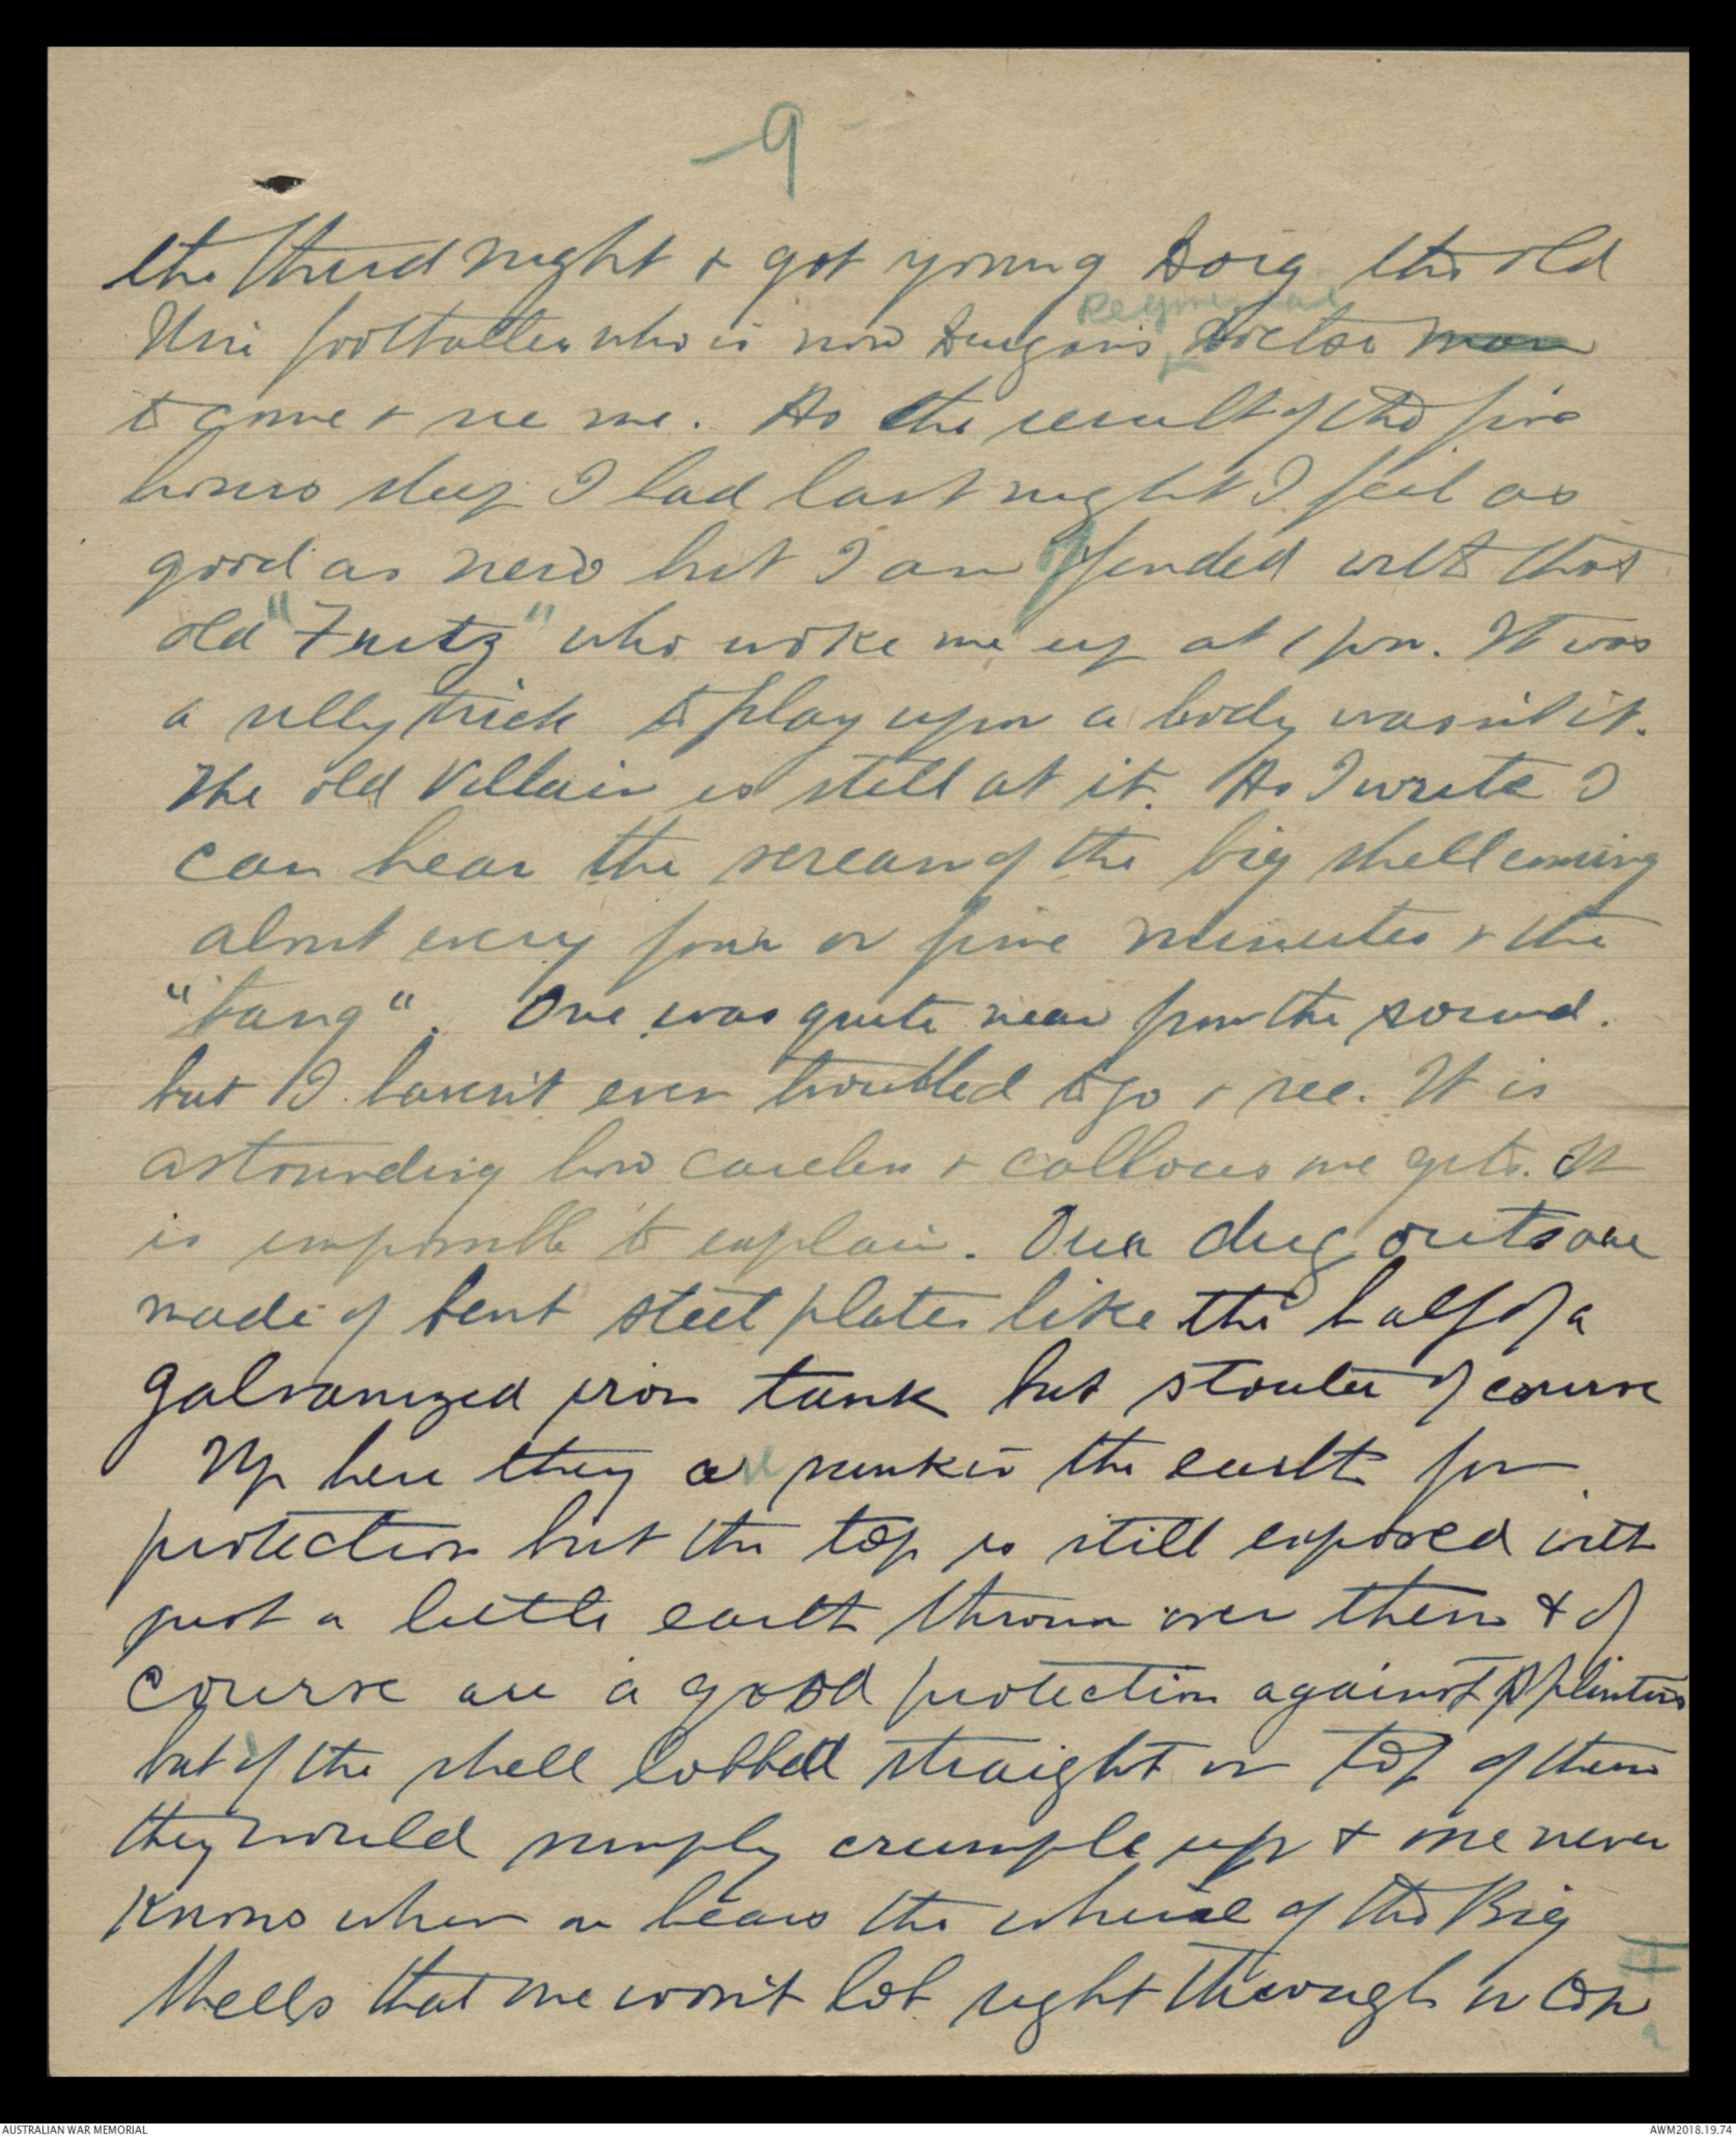 -9-
the third night & got young Doig the old
Uni footballer who is now Duigan's Regimental doctor man
to come & see me. As the result of the five
hours sleep I had last night I feel as
good as new but I am offended with that
old "Fritz" who woke me up at 1 pm. It was
a silly trick to play upon a body wasn't it.
The old Villain is still at it. As I write I
can hear the scream of the big shell coming
about every four or five minutes & the
"bang". One was quite near from the sound.
but I haven't even troubled to go & see. It is
astounding how careless & callous one gets. It
is impossible to explain. Our dug outs are
made of bent steel plates like the half of a
galvanized iron tank but stouter of course
Up here they are sunk in the earth for
protection but the top is still exposed with
just a little earth thrown over them & of
course are a good protection against splinters
but if the shell lobbed straight on top of them
they would simply crumple up & one never
knows when on hears the whine of the Big
Shells that one won't lob right through on top
AUSTRALIAN WAR MEMORIAL
AWM2018.19.74